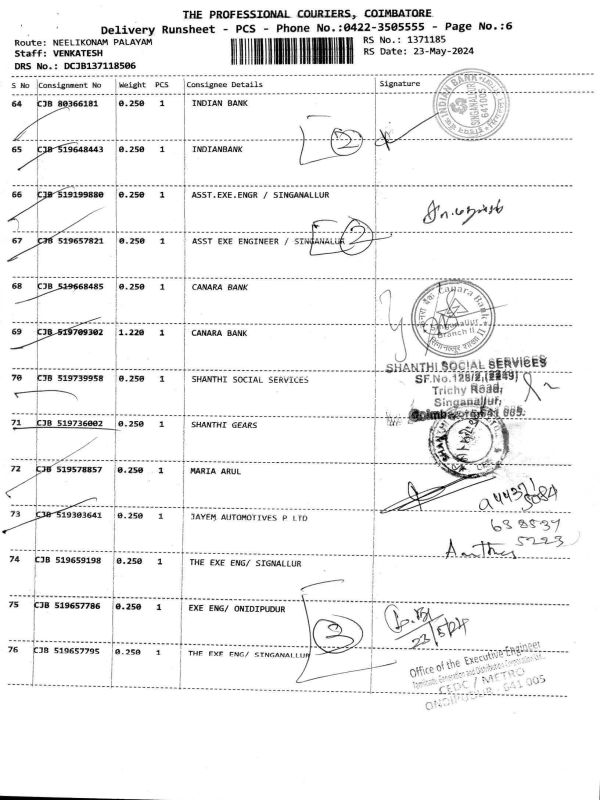 THE PROFESSIONAL COURIERS, COIMBATORE
Delivery Runsheet - PCS - Phone No.:0422-3505555 - Page No.:6
Route: NEELIKONAM PALAYAM
RS No.: 1371185
Staff: VENKATESH
RS Date: 23-May-2024
DRS No.: DCJB137118506
S No Consignment No Weight PCS Consignee Details Signature
64 CJB 80366181 0.250 1 INDIAN BANK
INDIAN BANK
SINGANALLUR
641005
2
65 CJB 519648443 0.250 1 INDIANBANK
66 CJB 519199880 0.250 1 ASST.EXE.ENGR / SINGANALLUR
67 CJB 519657821 0.250 1 ASST EXE ENGINEER / SINGANALUR
2
68 CJB 519668485 0.250 1 CANARA BANK
Canara Bank
Singanallur
Branch II
69 CJB 519709302 1.220 1 CANARA BANK
SHANTHI SOCIAL SERVICES
70 CJB 519739958 0.250 1 SHANTHI SOCIAL SERVICES
SF.No.
Trichy Road,
Singanallur,
Coimbatore
71 CJB 519736002 0.250 1 SHANTHI GEARS
72 CJB 519578857 0.250 1 MARIA ARUL
94437
5084
73 CJB 519303641 0.250 1 JAYEM AUTOMOTIVES P LTD
638537
5223
74 CJB 519659198 0.250 1 THE EXE ENG/ SIGNALLUR
75 CJB 519657786 0.250 1 EXE ENG/ ONIDIPUDUR
3
23/5/24
76 CJB 519657795 0.250 1 THE EXE ENG/ SINGANALLUR
Office of the Executive Engineer
CEDC / METRO
ONDIPUDUR - 641 005